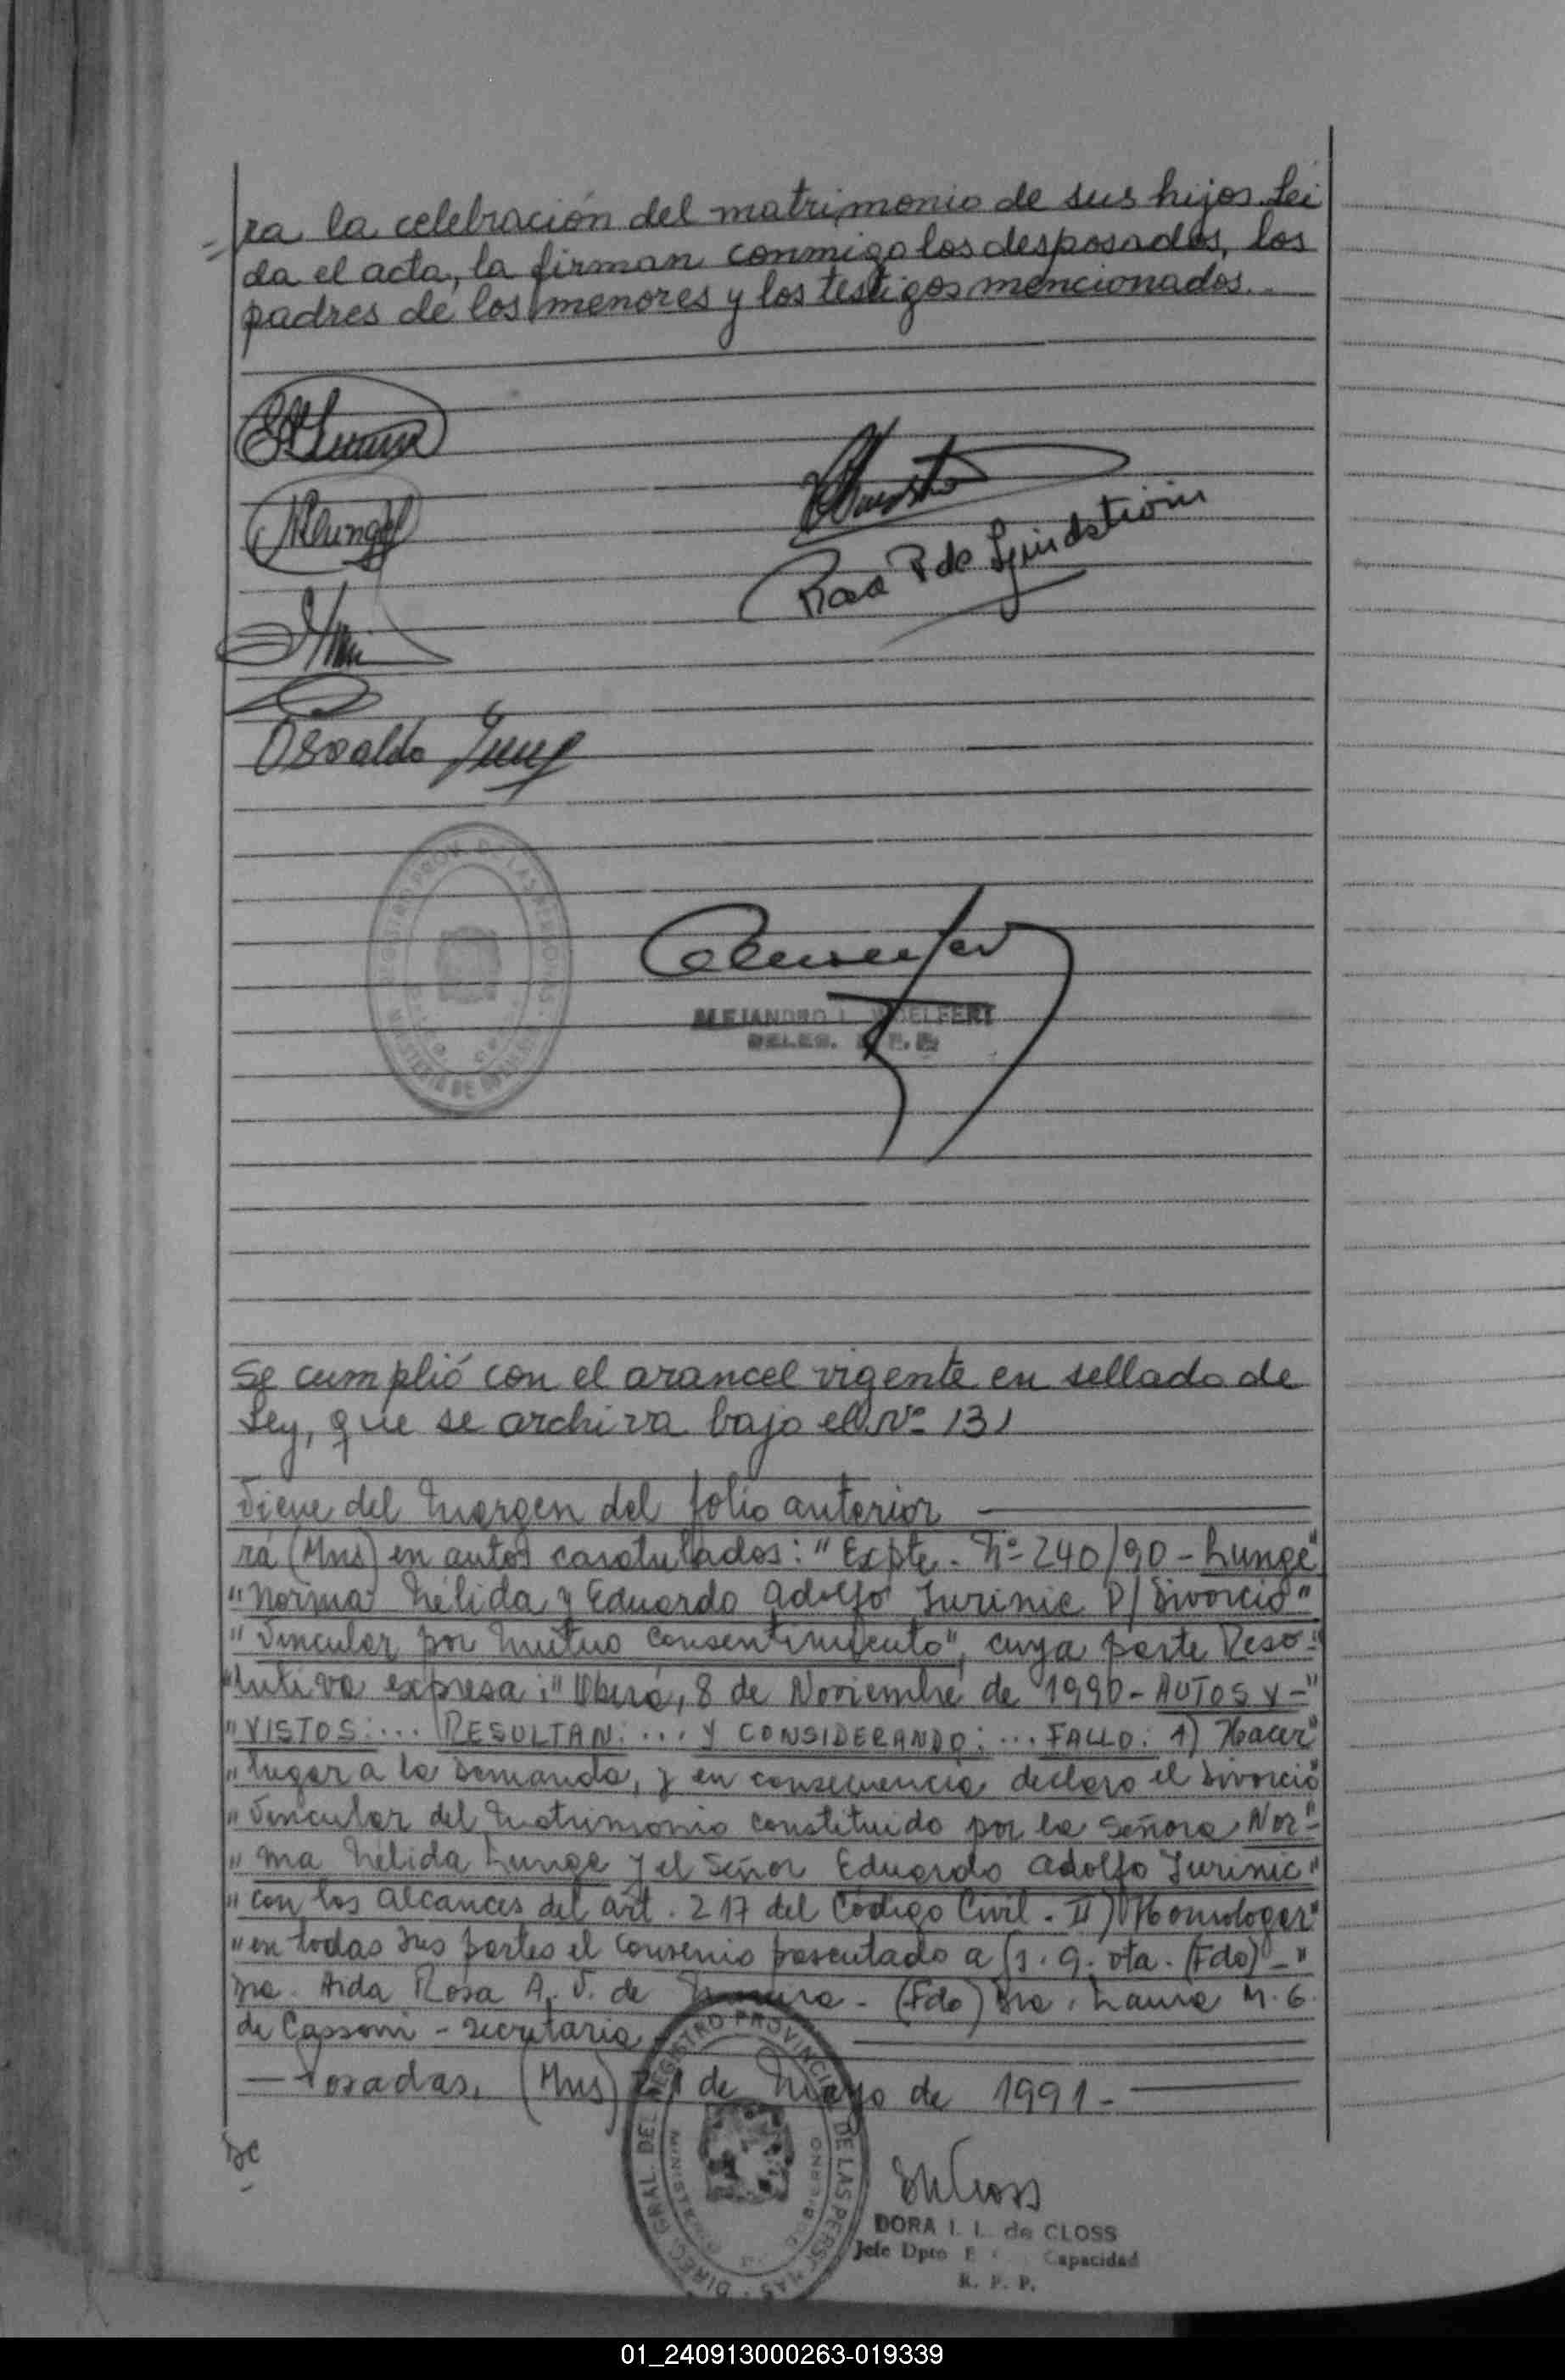 ra la celebración del matrimonio de sus hijos. Lei
da el acta, la firman conmigo los desposados, los
padres de los menores y los testigos mencionados.-
Rosa P de Lindström
Osvaldo
ALEJANDRO L.
DELEG. R. P. P.
Se cumplió con el arancel vigente en sellado de
Ley, que se archiva bajo el Nº 131
Viene del Margen del folio anterior
rá (Mns) en autos caratulados: "Expte. Nº 240/90 - Lunge"
"Norma Nélida y Eduardo Adolfo Jurinic P/ Divorcio"
"Vincular por Mutuo Consentimiento", cuya parte Reso-"
"lutiva expresa: "Oberá, 8 de Noviembre de 1990 - AUTOS Y -"
"VISTOS: ... RESULTAN: ... Y CONSIDERANDO: ... FALLO: 1) Hacer"
"lugar a la Demanda, y en consecuencia declaro el Divorcio
"Vincular del Matrimonio constituido por la Señora Nor"-
"ma Nélida Lunge y el Señor Eduardo Adolfo Jurinic"
"con los alcances del art. 217 del Código Civil. II) Homologar"
"en todas sus partes el Convenio presentado a fs. 9. vta. (Fdo) - "
Dra. Aida Rosa A. V. de - (Fdo) Dra. Laura M. G.
de Cassoni - Secretaria
— Posadas, (Mns) 21 de Mayo de 1991 -
DIREC. GRAL. DEL REGISTRO PROVINCIAL DE LAS PERSONAS
DORA I. L. de CLOSS
Jefe Dpto E Capacidad
R. P. P.
01_240913000263-019339